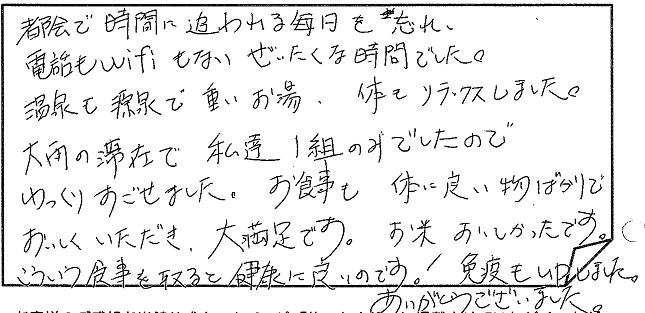 都会で時間に追われる毎日を忘れ、
電話もwifiもないぜいたくな時間でした。
温泉も源泉で重いお湯、体もリラックスしました。
大雨の滞在で私達1組のみでしたので
ゆっくりすごせました。お食事も体に良い物ばかりで
おいしくいただき、大満足です。お米おいしかったです。
こういう食事を取ると健康に良いのです。! 免疫もUPしました。
ありがとうございました。